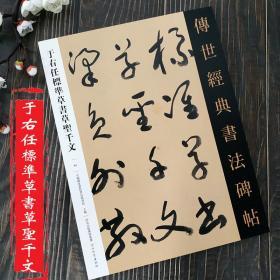 傳世經典書法碑帖
標準草書
草聖千文
于右任標準草書草聖千文
于右任標準草書草聖千文